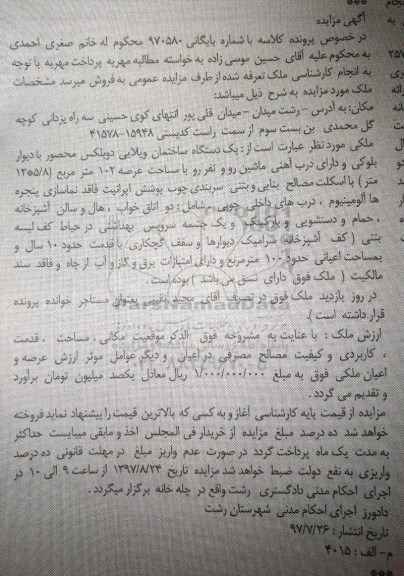 ***
آگهی مزایده
در خصوص پرونده کلاسه با شماره بایگانی ۹۷۰۵۸۰ محکوم له خانم صغری احمدی
به محکوم علیه آقای حسین موسی زاده به خواسته مطالبه مهریه پرداخت مهریه با توجه
به انجام کارشناسی ملک تعرفه شده از طرف مزایده عمومی به فروش میرسد مشخصات
ملک مورد مزایده به شرح ذیل میباشد:
مکان: به آدرس - رشت میدان - میدان قلی پور انتهای کوی حسینی سه راه یزدانی کوچه
گل محمدی بن بست سوم از سمت راست کدپستی ۱۵۹۴۸-۴۱۵۷۸
ملکی مورد نظر عبارت است از: یک دستگاه ساختمان ویلایی دوبلکس محصور با دیوار
بلوکی و دارای درب آهنی ماشین رو و نفر رو با مساحت عرصه ۱۰۲ متر مربع (۱۲۰۵/۸
متر) با اسکلت مصالح بنایی و بتنی سربندی چوب پوشش ایرانیت فاقد نماسازی پنجره
ها آلومینیوم ، درب های داخلی چوبی ، شامل: دو اتاق خواب ، هال و سالن آشپزخانه
، حمام و دستشویی و پارکینگ و یک چشمه سرویس بهداشتی در حیاط کف لیسه
بتنی ( کف آشپزخانه سرامیک دیوارها و سقف گچکاری) با قدمت حدود ۱۰ سال و
بمساحت اعیانی حدود ۱۰۰ مترمربع و دارای امتیازات برق و گاز و آب از چاه و فاقد سند
مالکیت ( ملک فوق دارای نسق می باشد ) بوده است .
در روز بازدید ملک فوق در تصرف آقای مجید نقیبی بعنوان مستاجر خوانده پرونده
قرار داشته است ).
ارزش ملک : با عنایت به مشروحه فوق الذکر موقعیت مکانی ، مساحت ، قدمت
، کاربردی و کیفیت مصالح مصرفی در اعیان و دیگر عوامل موثر ارزش عرصه و
اعیان ملکی فوق به مبلغ ۱/۰۰۰/۰۰۰/۰۰۰ ریال معادل یکصد میلیون تومان برآورد
و تقدیم می گردد .
مزایده از قیمت پایه کارشناسی آغاز و به کسی که بالاترین قیمت را پیشنهاد نماید فروخته
خواهد شد ده درصد مبلغ مزایده از خریدار فی المجلس اخذ و مابقی میبایست حداکثر
به مدت یک ماه پرداخت گردد در صورت عدم واریز مبلغ در مهلت قانونی ده درصد
واریزی به نفع دولت ضبط خواهد شد مزایده تاریخ ۱۳۹۷/۸/۲۴ از ساعت ۹ الی ۱۰ در
اجرای احکام مدنی دادگستری رشت واقع در چله خانه برگزار میگردد .
دادورز اجرای احکام مدنی شهرستان رشت
تاریخ انتشار : ۹۷/۷/۲۶
م - الف : ۴۰۱۵
***